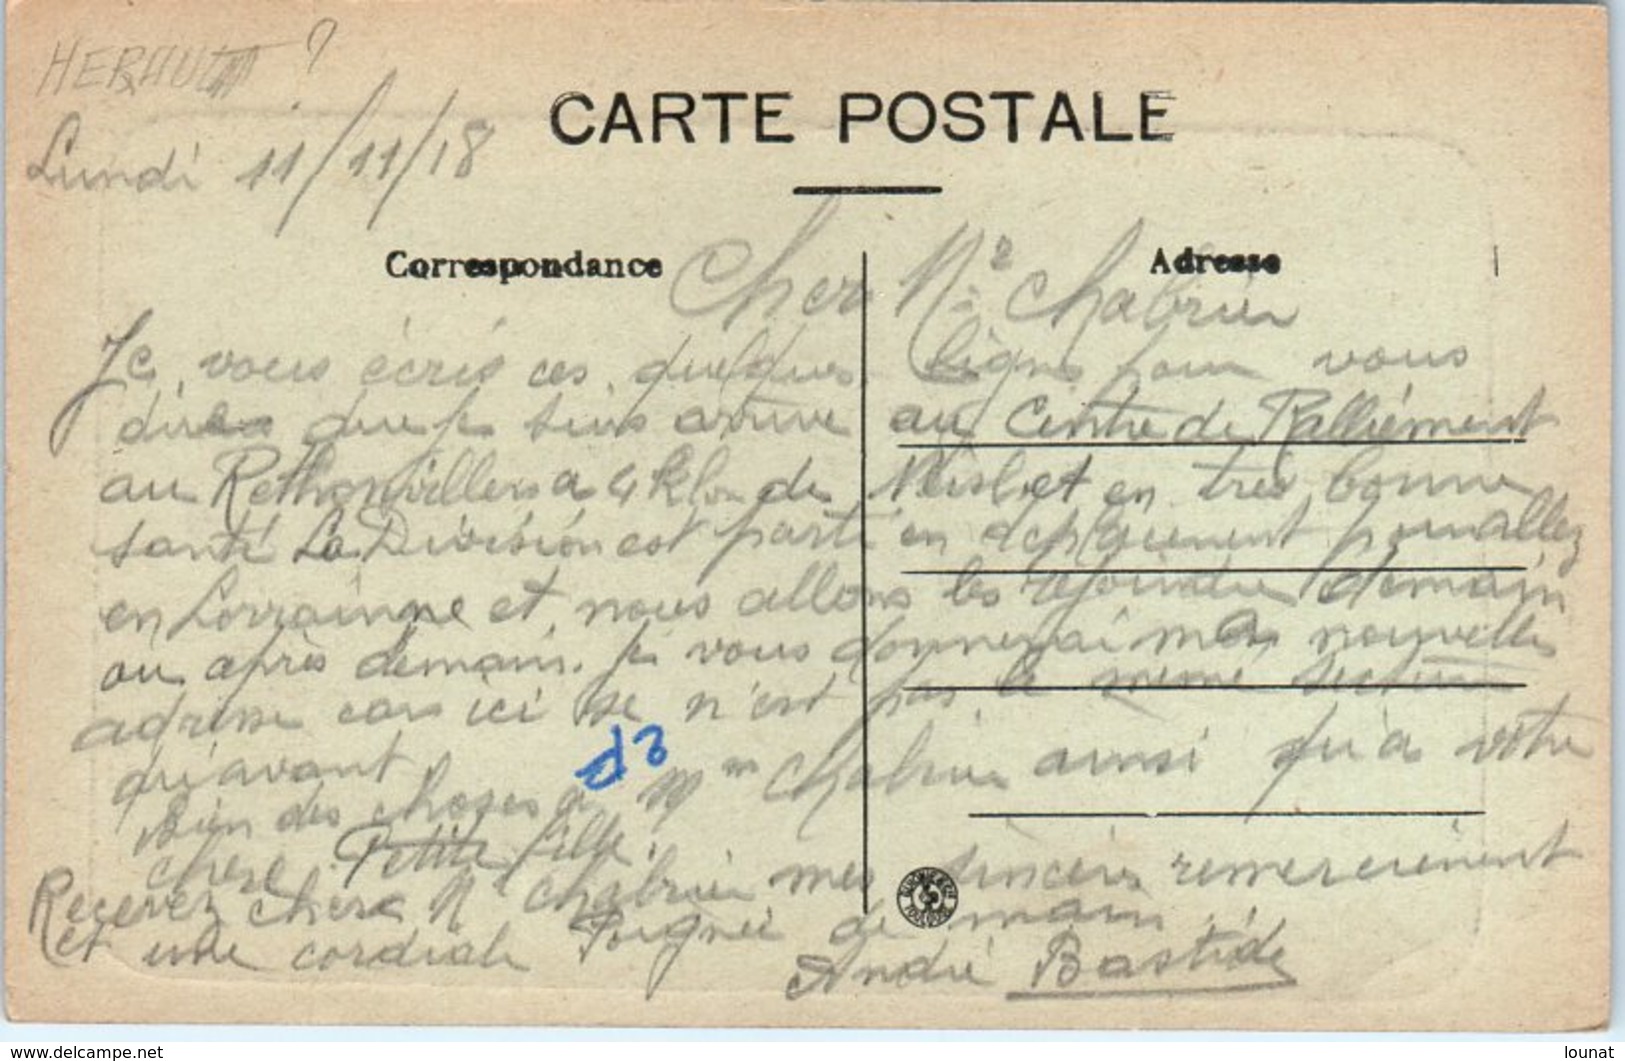 HERAULT ?
Lundi 11/11/18
CARTE POSTALE
Correspondance
Adresse
Cher Mr Chabrier
Je vous écris ces quelques lignes pour vous
dires que je suis arrive au Centre de Ralliément
au Rethonvillers a 4 klm de Nesle et en très bonne
santé La Division est parti en deplacement pour allez
en Lorrainne et nous allons les rejoindre demain
ou après demain. Je vous donnerai ma nouvelle
adresse car ici se n'est pas le meme secteur
qu'avant
Bien des choses a Mme Chabrier ainsi qu'a votre
chere Petite fille.
Recevez cher Mr Chabrier mes sincères remerciement
et une cordiale Poignée de main.
André Bastide
delcampe.net
lounat